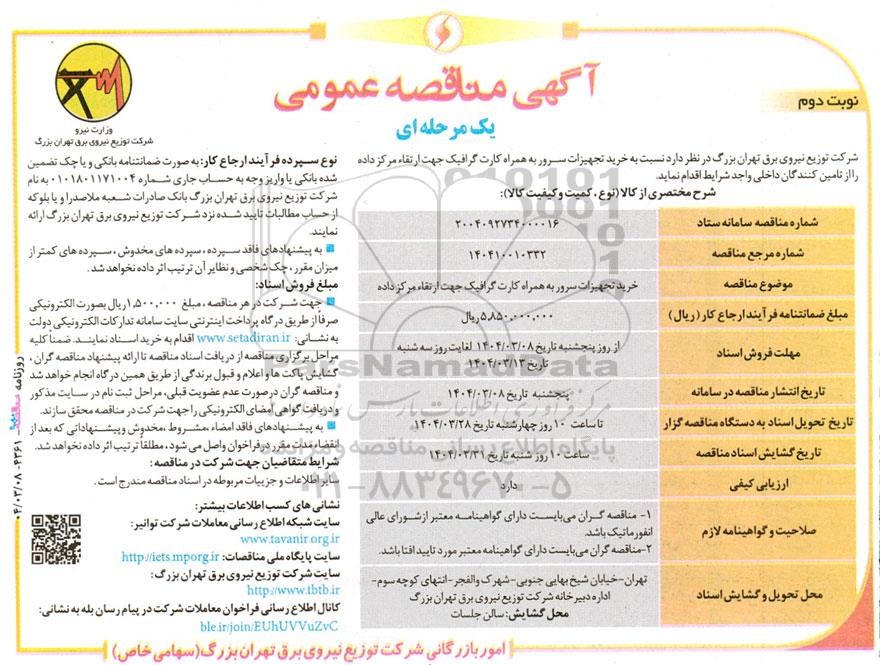 آگهی مناقصه عمومی
یک مرحله ای
نوبت دوم
وزارت نیرو
شرکت توزیع نیروی برق تهران بزرگ
شرکت توزیع نیروی برق تهران بزرگ در نظر دارد نسبت به خرید تجهیزات سرور به همراه کارت گرافیک جهت ارتقاء مرکز داده
را از تامین کنندگان داخلی واجد شرایط اقدام نماید.
شرح مختصری از کالا (نوع، کمیت و کیفیت کالا):
شماره مناقصه سامانه ستاد
۲۰۰۴۰۹۲۷۳۴۰۰۰۰۱۶
شماره مرجع مناقصه
۱۴۰۴۱۰۰۱۰۳۳۲
موضوع مناقصه
خرید تجهیزات سرور به همراه کارت گرافیک جهت ارتقاء مرکز داده
مبلغ ضمانتنامه فرآیند ارجاع کار (ریال)
۵,۸۵۰,۰۰۰,۰۰۰ ریال
مهلت فروش اسناد
از روز پنجشنبه تاریخ ۱۴۰۴/۰۳/۰۸ لغایت روز سه شنبه
تاریخ ۱۴۰۴/۰۳/۱۳
تاریخ انتشار مناقصه در سامانه
پنجشنبه تاریخ ۱۴۰۴/۰۳/۰۸
تاریخ تحویل اسناد به دستگاه مناقصه گزار
تا ساعت ۱۰ روز چهارشنبه تاریخ ۱۴۰۴/۰۳/۲۸
تاریخ گشایش اسناد مناقصه
ساعت ۱۰ روز شنبه تاریخ ۱۴۰۴/۰۳/۳۱
ارزیابی کیفی
دارد
صلاحیت و گواهینامه لازم
۱- مناقصه گران می‌بایست دارای گواهینامه معتبر از شورای عالی
انفورماتیک باشد.
۲- مناقصه گران می‌بایست دارای گواهینامه معتبر مورد تایید افتا باشد.
محل تحویل و گشایش اسناد
تهران-خیابان شیخ بهایی جنوبی-شهرک والفجر-انتهای کوچه سوم-
اداره دبیرخانه شرکت توزیع نیروی برق تهران بزرگ
محل گشایش: سالن جلسات
نوع سپرده فرآیند ارجاع کار: به صورت ضمانتنامه بانکی و یا چک تضمین
شده بانکی یا واریز وجه به حساب جاری شماره ۰۱۰۱۸۰۱۱۷۱۰۰۴ به نام
شرکت توزیع نیروی برق تهران بزرگ بانک صادرات شعبه ملاصدرا و یا بلوکه
از حساب مطالبات تایید شده نزد شرکت توزیع نیروی برق تهران بزرگ ارائه
نمایند.
به پیشنهادهای فاقد سپرده، سپرده های مخدوش، سپرده های کمتر از
میزان مقرر، چک شخصی و نظایر آن ترتیب اثر داده نخواهد شد.
مبلغ فروش اسناد:
جهت شرکت در هر مناقصه، مبلغ ۱,۵۰۰,۰۰۰ ریال بصورت الکترونیکی
صرفا از طریق درگاه پرداخت اینترنتی سایت سامانه تدارکات الکترونیکی دولت
به نشانی: www.setadiran.ir اقدام به خرید اسناد نمایند. ضمنا کلیه
مراحل برگزاری مناقصه از دریافت اسناد مناقصه تا ارائه پیشنهاد مناقصه گران،
گشایش پاکت ها و اعلام و قبول برندگی از طریق همین درگاه انجام خواهد شد
و مناقصه گران در صورت عدم عضویت قبلی، مراحل ثبت نام در سایت مذکور
و دریافت گواهی امضای الکترونیکی را جهت شرکت در مناقصه محقق سازند.
به پیشنهادهای فاقد امضاء، مشروط، مخدوش و پیشنهاداتی که بعد از
انقضاء مدت مقرر در فراخوان واصل می شود، مطلقاً ترتیب اثر داده نخواهد شد.
شرایط متقاضیان جهت شرکت در مناقصه:
سایر اطلاعات و جزییات مربوطه در اسناد مناقصه مندرج است.
نشانی های کسب اطلاعات بیشتر:
سایت شبکه اطلاع رسانی معاملات شرکت توانیر:
www.tavanir.org.ir
سایت پایگاه ملی مناقصات: http://iets.mporg.ir
سایت شرکت توزیع نیروی برق تهران بزرگ:
http://www.tbtb.ir
کانال اطلاع رسانی فراخوان معاملات شرکت در پیام رسان بله به نشانی:
ble.ir/join/EUhUVVuZvC
امور بازرگانی شرکت توزیع نیروی برق تهران بزرگ (سهامی خاص)
روزنامه مناقصه ۴۳۶۱-۰۴/۰۳/۰۸
ParsNamadData
مرکز فرآوری اطلاعات پارس
پایگاه اطلاع رسانی مناقصه و مزایده
۰۲۱-۸۸۳۴۹۶۷۰-۵